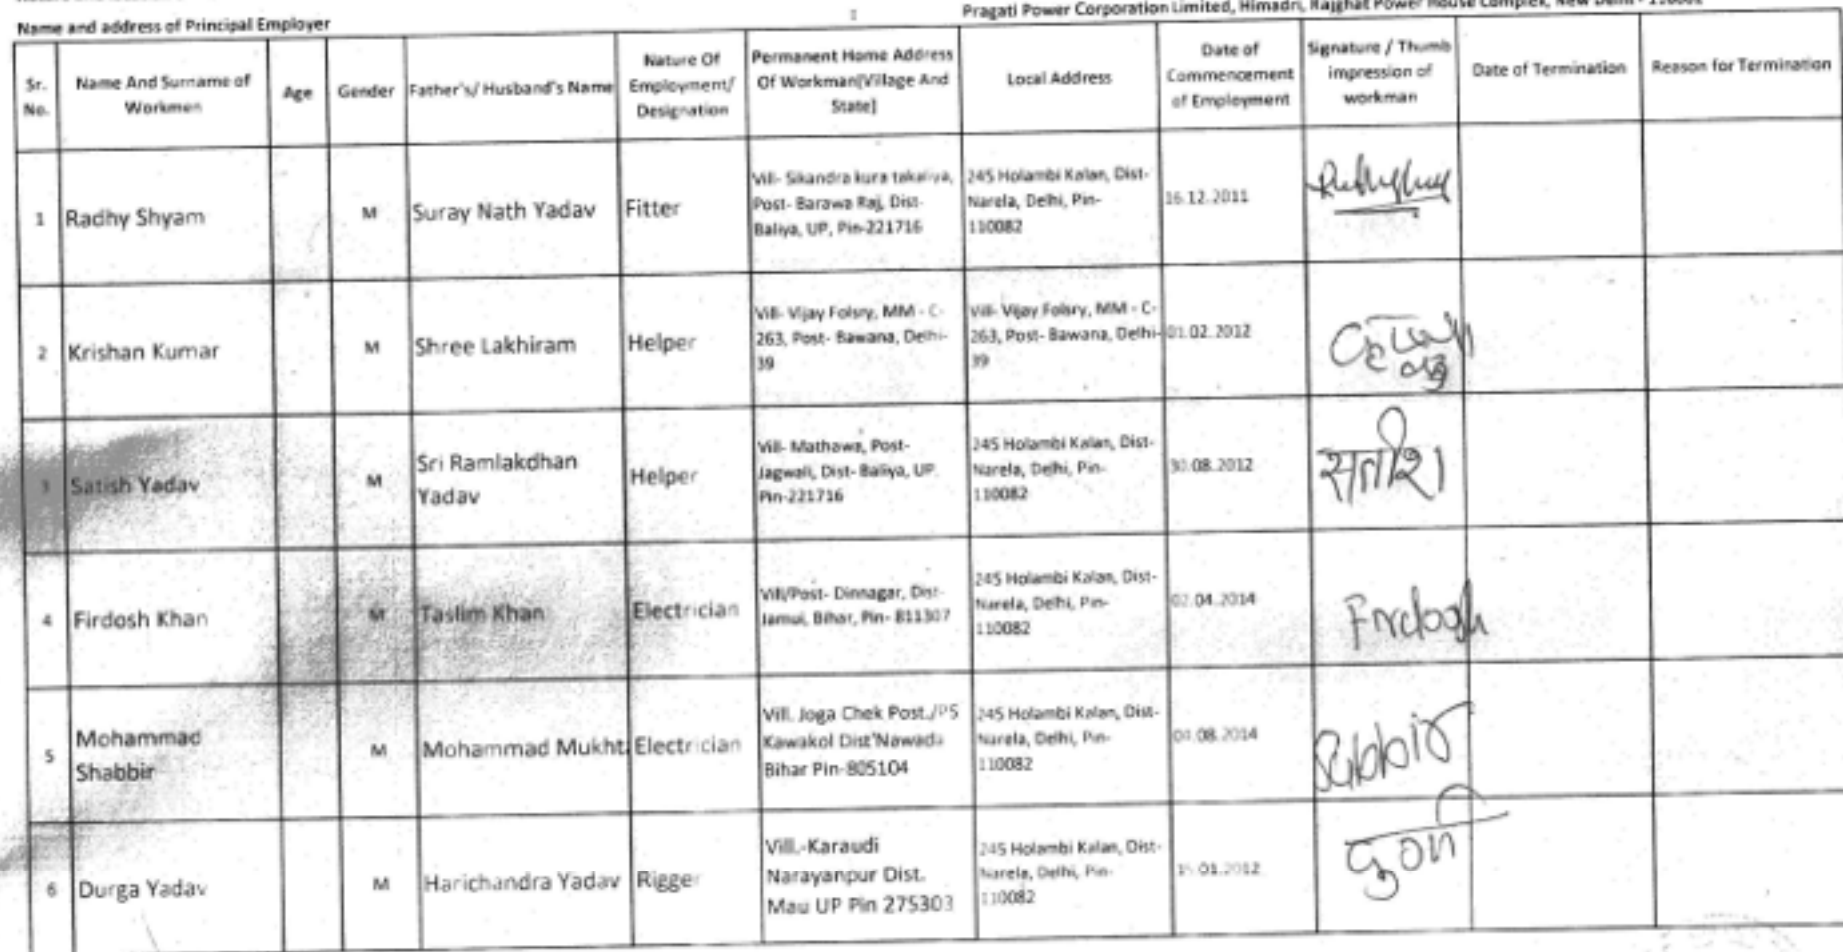 Pragati Power Corporation Limited, Himadri, Rajghat Power House Complex, New Delhi -
Name and address of Principal Employer
Sr. No.
Name And Surname of Workmen
Age
Gender
Father's/ Husband's Name
Nature Of Employment/ Designation
Permanent Home Address Of Workman[Village And State]
Local Address
Date of Commencement of Employment
Signature / Thumb impression of workman
Date of Termination
Reason for Termination
1
Radhy Shyam
M
Suray Nath Yadav
Fitter
Vill- Sikandra kura
Post- Barawa Raj, Dist-
Baliya, UP, Pin-221716
245 Holambi Kalan, Dist-
Narela, Delhi, Pin-
110082
16.12.2011
2
Krishan Kumar
M
Shree Lakhiram
Helper
Vill- Vijay Folsry, MM - C-
263, Post- Bawana, Delhi-
39
Vill- Vijay Folsry, MM - C-
263, Post- Bawana, Delhi-
39
01.02.2012
3
Satish Yadav
M
Sri Ramlakdhan
Yadav
Helper
Vill- Mathawa, Post-
Jagwali, Dist- Baliya, UP,
Pin-221716
245 Holambi Kalan, Dist-
Narela, Delhi, Pin-
110082
30.08.2012
सतीश
4
Firdosh Khan
M
Taslim Khan
Electrician
Vill/Post- Dinnagar, Dist-
Jamui, Bihar, Pin- 811307
245 Holambi Kalan, Dist-
Narela, Delhi, Pin-
110082
02.04.2014
Firdosh
5
Mohammad
Shabbir
M
Mohammad Mukht
Electrician
Vill. Joga Chek Post./PS
Kawakol Dist'Nawada
Bihar Pin-805104
245 Holambi Kalan, Dist-
Narela, Delhi, Pin-
110082
Sabbir
6
Durga Yadav
M
Harichandra Yadav
Rigger
Vill.-Karaudi
Narayanpur Dist.
Mau UP Pin 275303
245 Holambi Kalan, Dist-
Narela, Delhi, Pin-
110082
दुर्गा